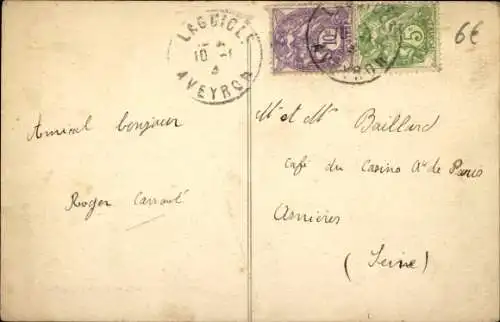 LAGUIOLE
AVEYRON
10
5
6€
Amical bonjour
Roger
Mr et Mme Baillard
café du Casino Av de Paris
Asnières
(Seine)